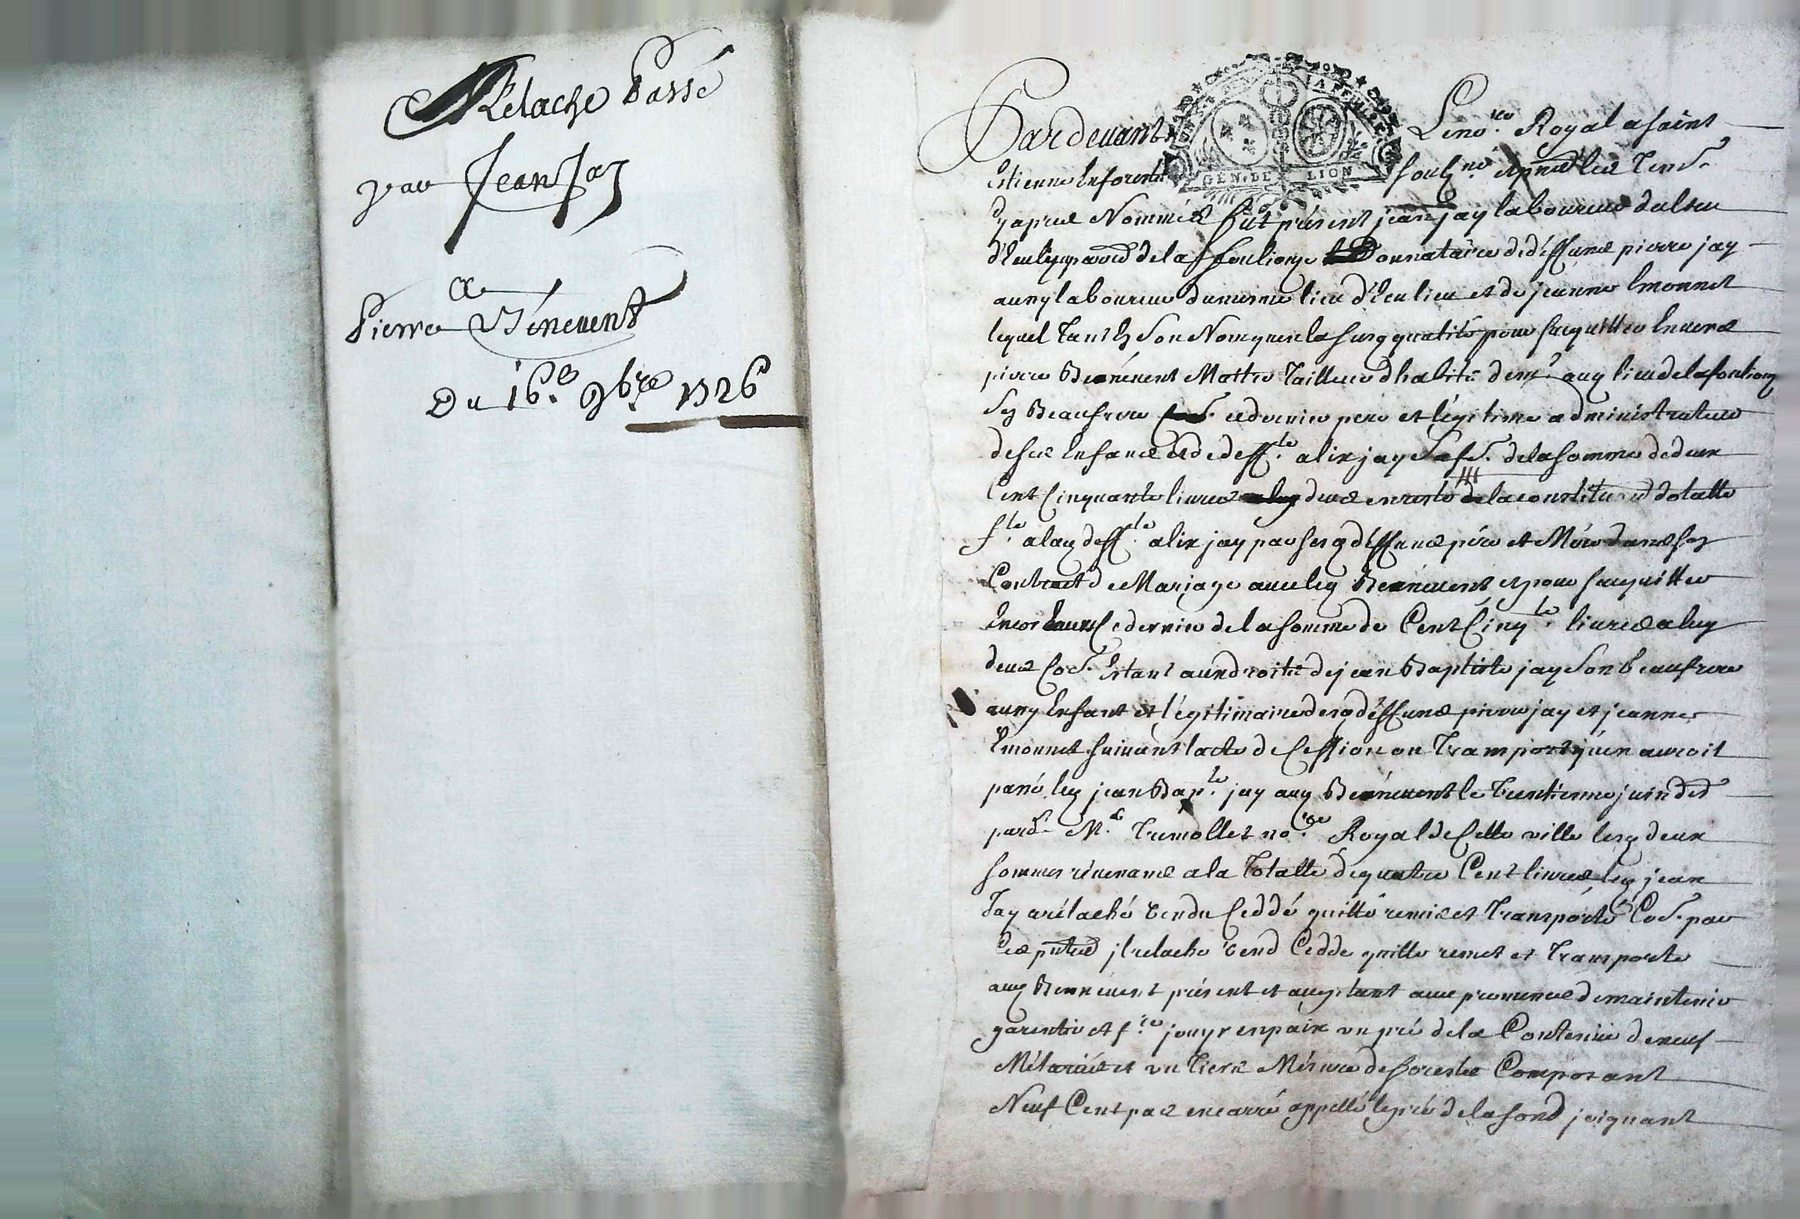 Relache Passé
par Jean Jay
a
Pierre Bénévent
Du 16e. 9bre 1726
GEN. DE LION
Pardevant Le no.re Royal a saint
Estienne en forest soub.né et présentz les tesm.
cy apres nommés fut présent jean jay laboureur du lieu
parroisse de la fouliouze Donnataire de deffunct pierre jay
laboureur du mesme lieu et de jeanne Emonnet
lequel tant en son nom qu'en la susd qualité pour s'acquitter envers
pierre Bénévent Maître Tailleur d'habits dem.t aud lieu de la foulionze
sond Beaufrere ce dernier pere et légitime administrateur
de ses Enfans et de deff.te alix jay sa fe. de la somme de deux
Cent Cinquante livres dues en reste de la constitu.on dotalle
f.te a lad deff.te alix jay par sesd deffuncs père et Mère dans son
Contract de Mariage avec led Bénévent et pour s'acquitter
encor envers ce dernier de la somme de Cent Cinq.te livres a luy
deue co.e estant aux droits de jean Baptiste jay son beaufrere
aussy Enfant et légitimaire desd déffuncs pierre jay et jeanne
Emonnet suivant l'acte de Cession ou Transport qu'en auroit
passé led jean Bap.te jay aud Bénévent le Trentieme juin d.er
pard.t M.e Tremollet no.re Royal de Cette ville lesd deux
sommes révenans a la Totalle de quatre Cent livres led jean
Jay a relaché vendu Ceddé quitté remis et Transporté Co.e par
Ces pntes jl relache vend Cedde quitte remet et Transporte
aud Bennévent présent et acceptant avec promesse de maintenir
garentir et f.re jouyr en paix un pré de la Contenue de neuf
Métanées et un Tiers Mesure de forestz Composant
Neuf Cent pas en carré appellé le pré de la fond joignant